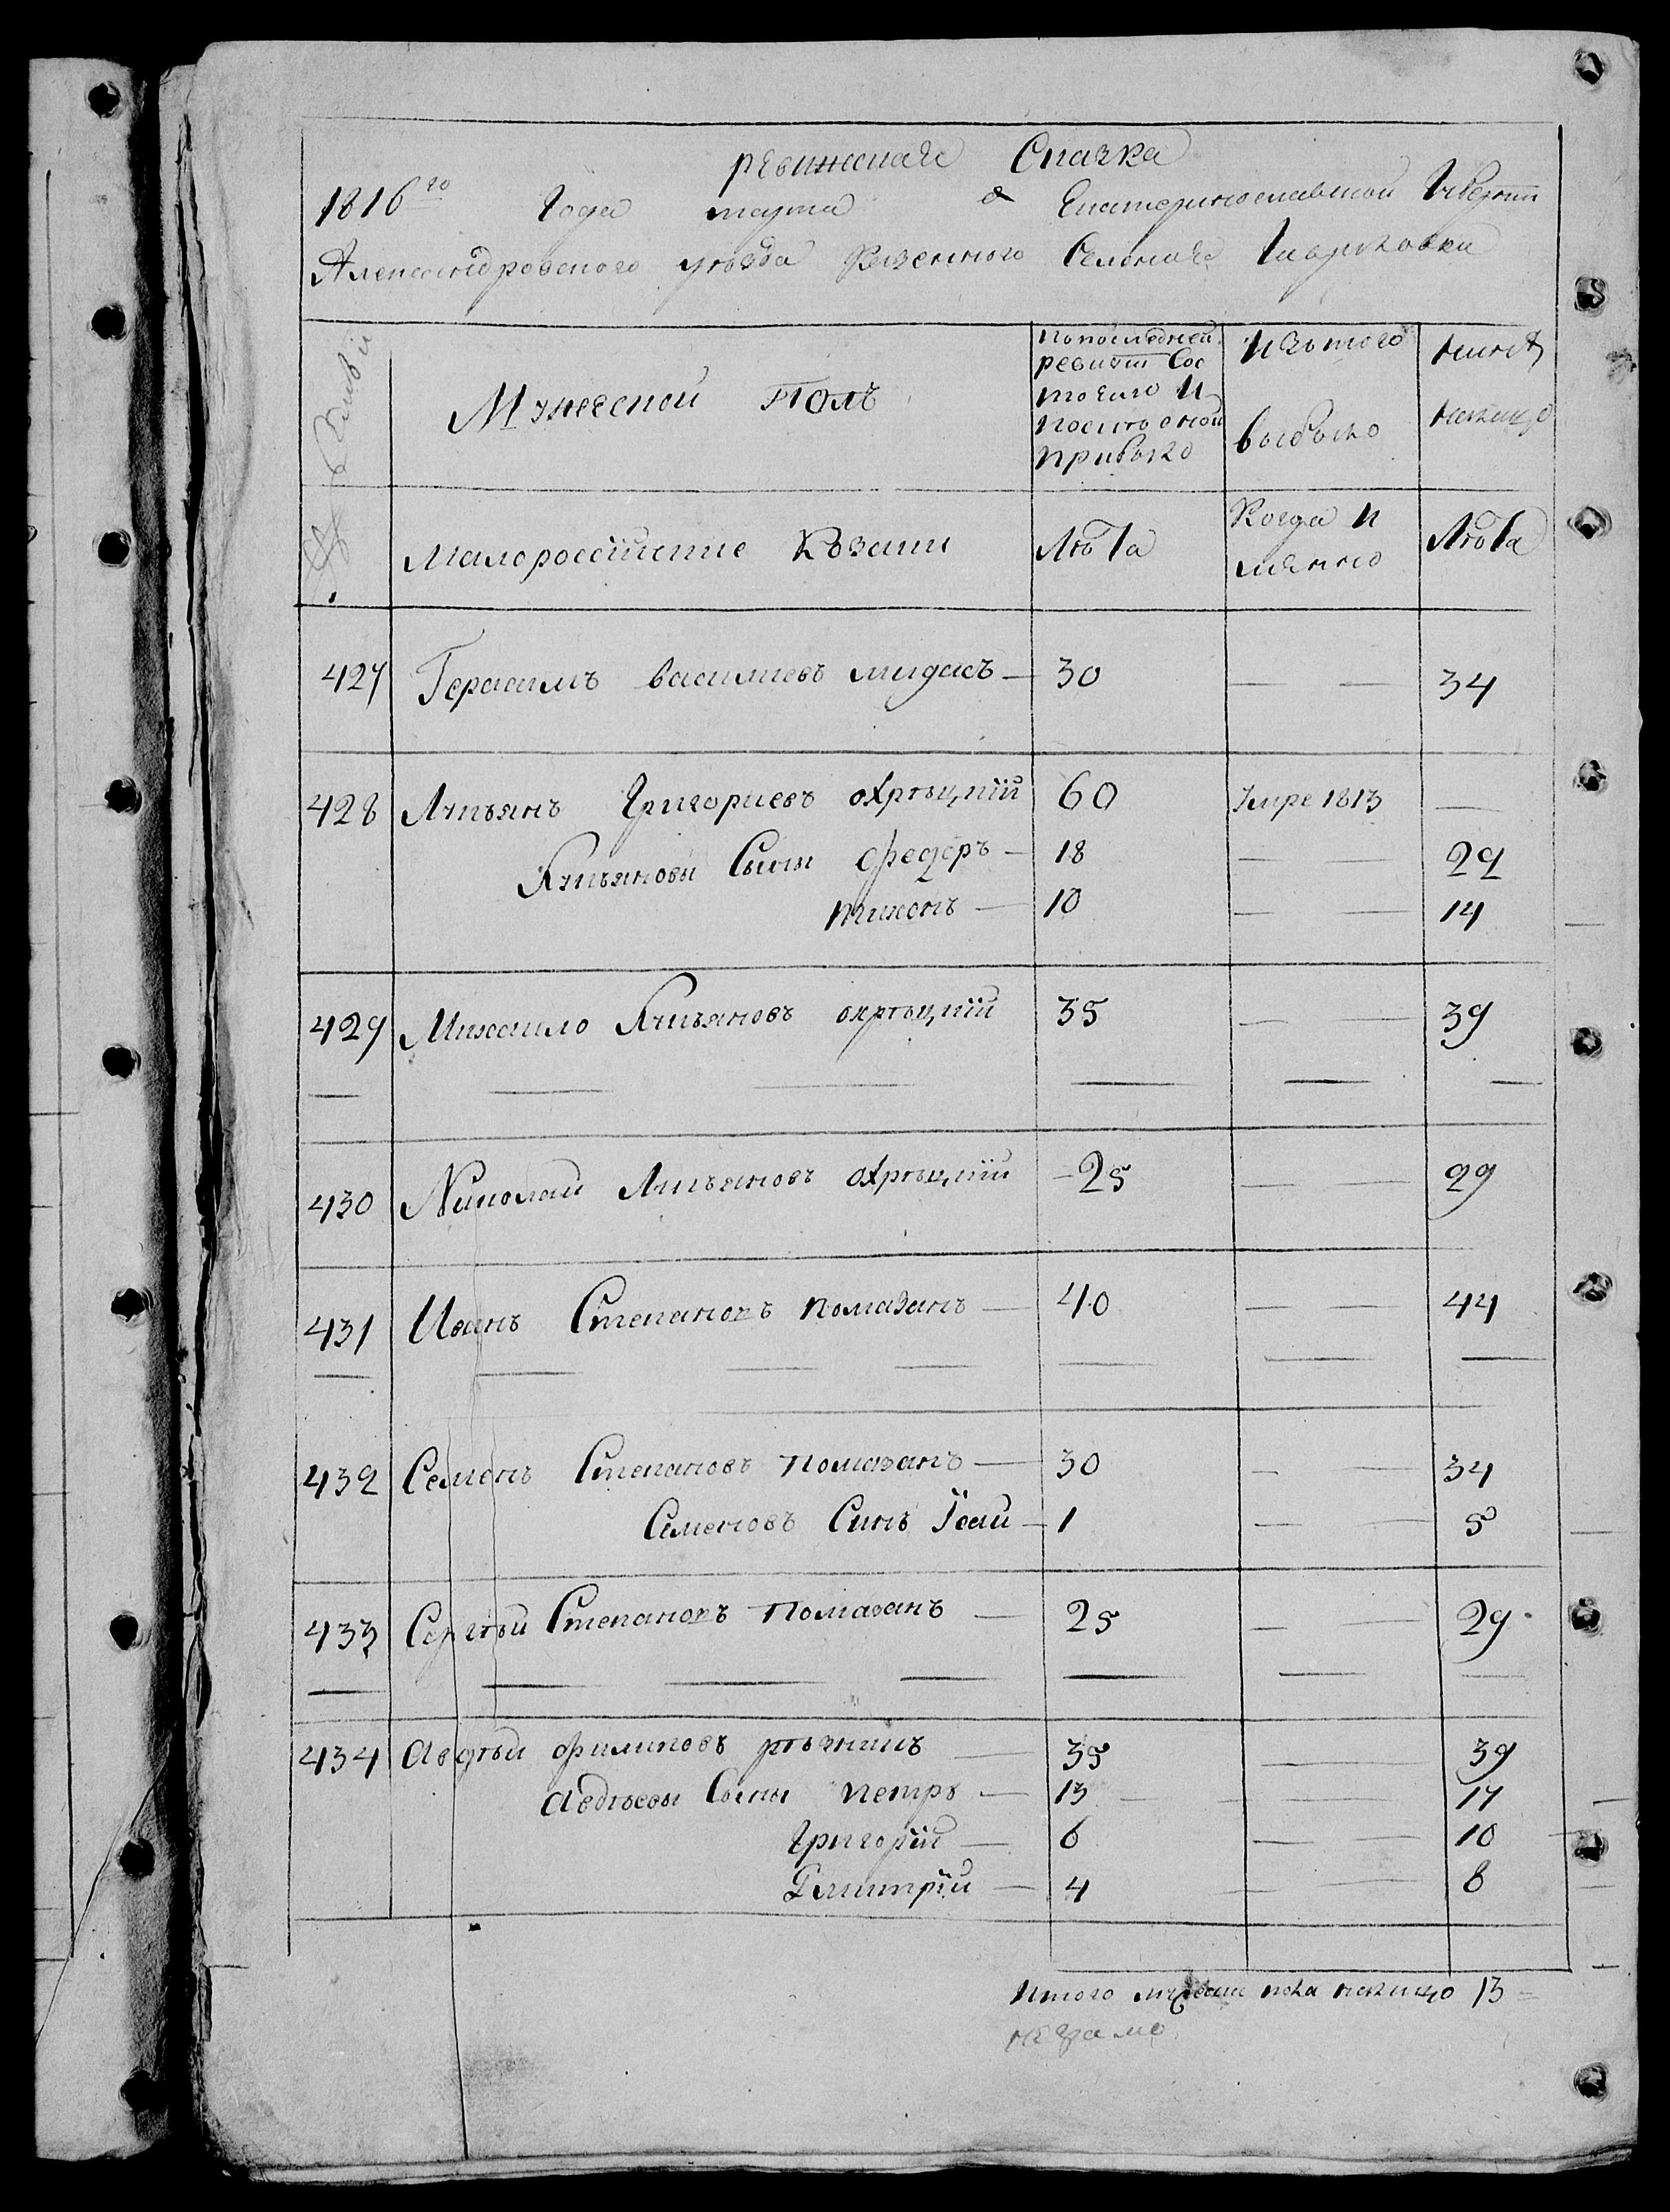 ревижская Сказка
1816го Года марта д Екатеринославской Губернии
Александровского уезда Казенного Селения
Мужеской Полъ
По последней ревизiи Состояло И После оной прибыло
Изъ того выбыло
Ныне на лицо
Малороссiйские Козаки
Лѣта
Когда И мянно
Лѣта
427 Герасимъ василиевъ мидасъ — 30 — — 34
428 Лукъянъ Григориевъ охрѣцкiй 60 Умре 1813 —
Лукъяновы Сыны федоръ — 18 — — 22
тихонъ — 10 — — 14
429 Михаило Лукъяновъ охрѣцкiй 35 — — 39
430 Николай Лукъяновъ охрѣцкiй — 25 — — 29
431 Иванъ Степановъ помазанъ — 40 — — 44
432 Семенъ Степановъ помазанъ — 30 — — 34
Семеновъ Синъ Iсай — 1 — — 5
433 Сергѣй Степановъ Помазанъ — 25 — — 29
434 Авдѣй филиповъ рѣзникъ — 35 — — 39
Авдѣевы Сыны петръ — 13 — — 17
Григорiй — 6 — — 10
Димитрiй — 4 — — 8
Итого мужеска пола налицо 13